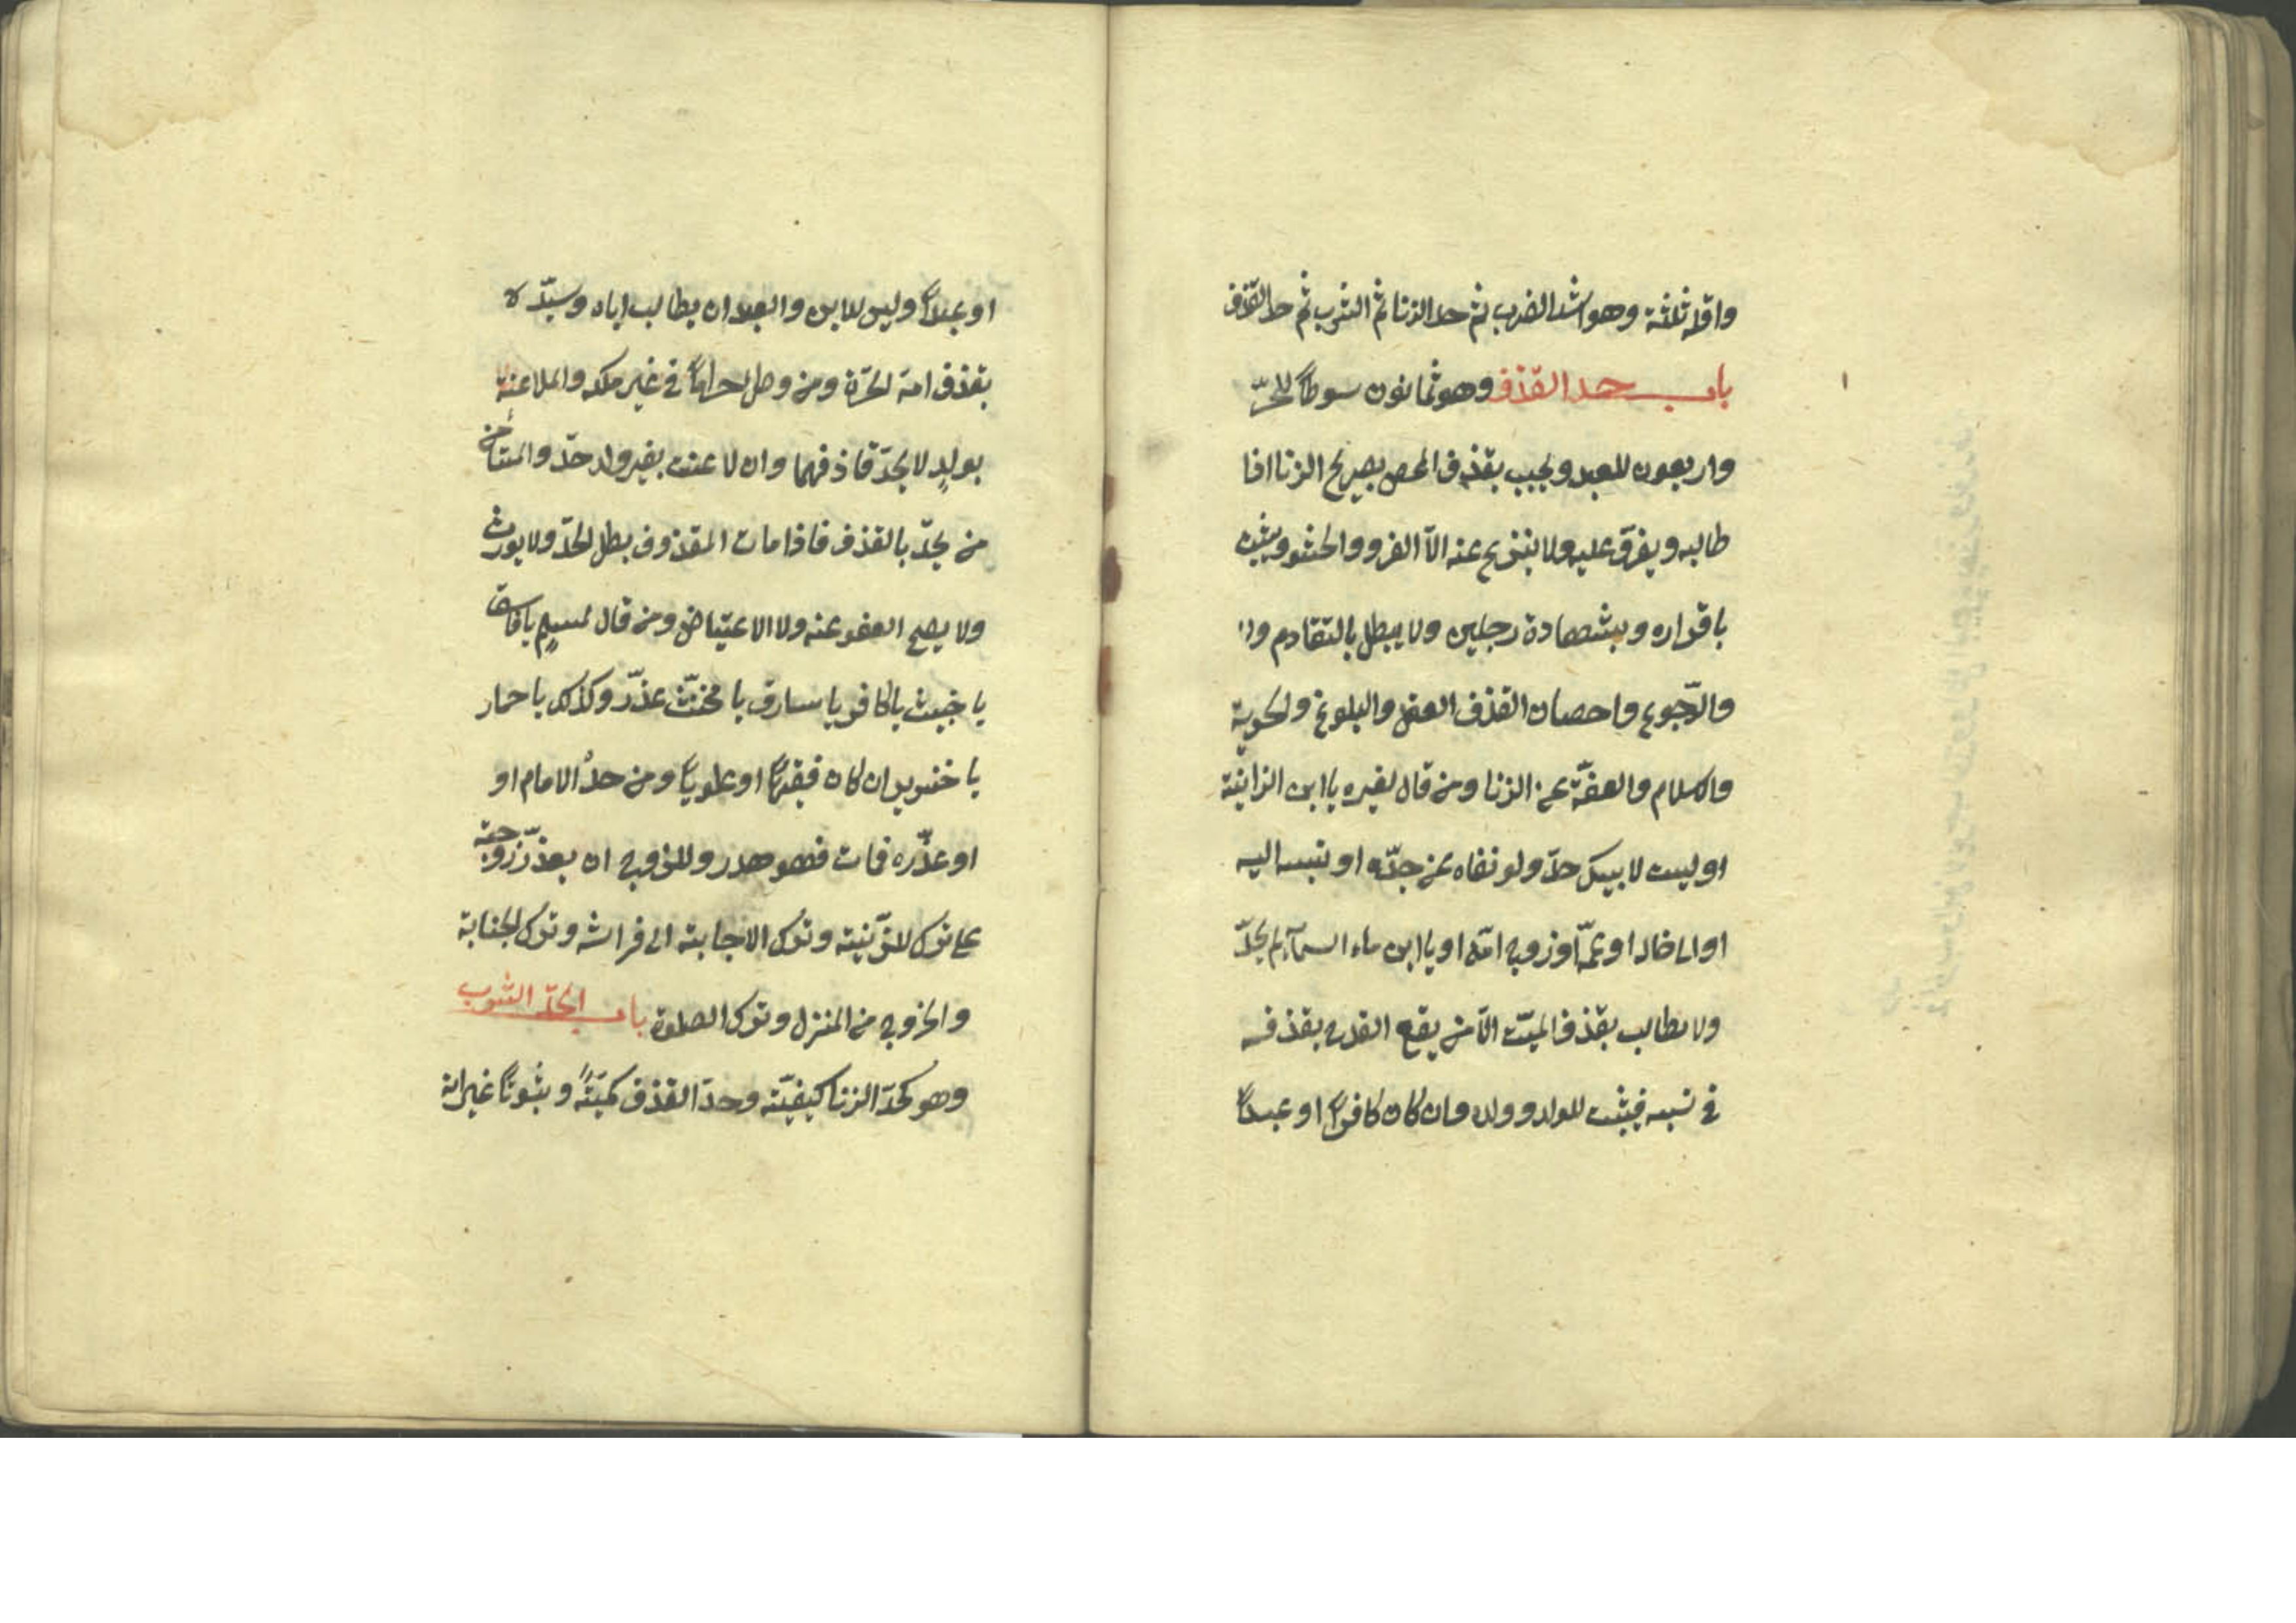 واقله ثلثة وهو اشد الضرب ثم حد الزنا ثم الشرب ثم حد القذف
باب حد القذف وهو ثمانون سوطاً للحرّ
واربعون للعبد ويجب بقذف المحصن بصريح الزنا اذا
طالبه ويفرّق عليه ولا ينزع عنه الاّ الفرو والحشو ويثبت
باقراره وبشهادة رجلين ولا يبطل بالتقادم
والرّجوع واحصان القذف العقل والبلوغ والحرية
والاسلام والعفّة عن الزنا ومن قال لغيره يا ابن الزانية
او ليست لابيك حدّ ولو نفاه عن جدّه او نسبه اليه
او الى خاله او عمّه او زوج امّه او يا ابن ماء السمآء لم يحدّ
ولا يطالب بقذف الميّت الاّ من يقع القدح بقذفه
في نسبه فيثبت للولد وولده وان كان كافراً او عبداً
او عبداً وليس للابن والعبد ان يطالب اباه وسيّده
بقذف امّه الحرّة ومن وطئ حراماً في غير ملكه والملاعنة
بولدٍ لا يحدّ قاذفهما وان لاعنت بغير ولد حدّ والمستأمن
من يحدّ بالقذف فاذا مات المقذوف بطل الحدّ ولا يورث
ولا يصح العفو عنه ولا الاعتياض ومن قال لمسلمٍ يا فاسق
يا خبيث يا كافر يا سارق يا مخنّث عذّر وكذلك يا حمار
يا خنزير ان كان فقيهاً او علوياً ومن حدّه الامام او
او عذّره فمات فهو هدر وللزوج ان يعذّر زوجته
على ترك للزّينة وترك الاجابة الى فراشه وترك الجنابة
والخروج من المنزل وترك الصلوة باب الحدّ الشرب
وهو كحدّ الزنا كيفيّة وحدّ القذف كميّةً وثبوتاً غير انه